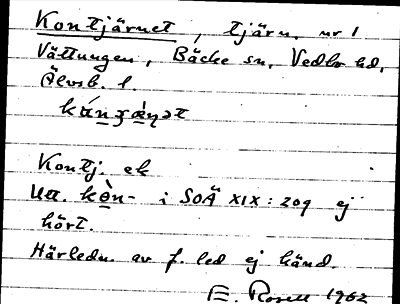 Kontjärnet, tjärn. nr 1
Vättungen, Bäcke sn, Vedbo hd,
Älvsb. l.
Kontj. ek
Utt. kò̱n- i SOÄ XIX: 209 ej
hört.
Härledn. av f. led ej känd.
E. Rosell 1962